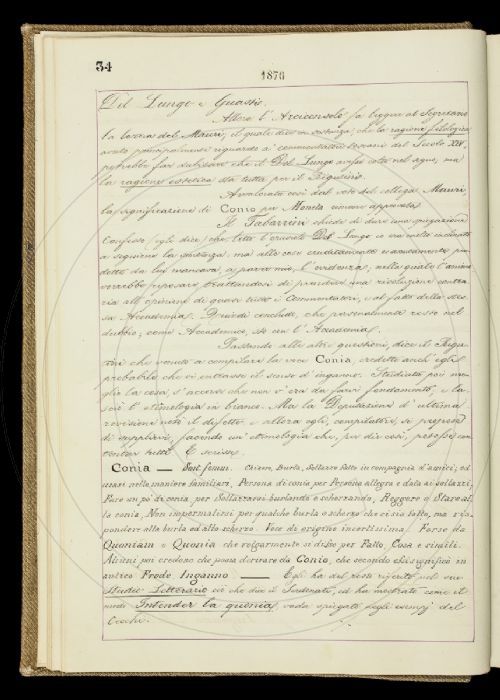 34
1876
Del Lungo e Guasti.
Allora l'Arciconsolo fa leggere al Segretario
la lettera del Mauri, il quale dice in sostanza, che la ragione filologica
avuto principalmente riguardo a' commentatori toscani del Secolo XIV.
potrebbe far dubitare che il Del Lungo avesse colto nel segno, ma
la ragione estetica sta tutta per il Bigurini.
Avvalorata così dal voto del collega Mauri,
la significazione di Conio per Moneta rimane approvata.
Il Tabarrini chiede di dare una spiegazione.
Confesso (egli dice) che letto l'erudito Del Lungo
a seguirne la sentenza; ma alle cose eruditamente e
dette da lui mancava, a parer mio, l'evidenza, nella quale l'animo
vorrebbe riposare trattandosi di prendere una risoluzione contra-
ria all'opinione di quasi tutti i Commentatori, e al fatto della stes-
sa Accademia. Quindi conclude, che personalmente resta nel
dubbio; come Accademico, sta con l'Accademia.
Passando alle altre questioni, dice il
che venuto a compilare la voce Conia, credette anch'egli
probabile che vi entrasse il senso d'inganno. Studiata poi me-
glio la cosa, s'accorse che non v'era da farvi fondamento, e la-
sciò l'etimologia in bianco. Ma la Deputazione d'ultima
revisione notò il difetto, e allora egli, compilatore, si propose
di supplirvi, facendo un'etimologia che, per dir così, potesse con-
tentar tutti. E scrisse,
Conia — Sost. femm. Chiasso, Burla, Sollazzo fatto in compagnia d'amici; ed
usasi nelle maniere familiari, Persona di conia per Persona allegra e data ai sollazzi,
Fare un po' di conia, per Sollazzarsi burlando e scherzando, Reggere o Stare al-
la conia, Non impermalirsi per qualche burla o scherzo che ci sia fatto, ma ris-
pondere alla burla ed allo scherzo. Voce di origine incertissima. Forse da
Quoniam o Quonia che volgarmente si disse per Fatto, Cosa e simili.
Alcuni poi credono che possa derivare da Conio, che secondo essi significò in
antico Frode Inganno — Egli ha del resto riferito nel suo
Studio Letterario ciò che dice il Fanfani, ed ha mostrato come il
modo Intender la quonia, vada spiegato cogli esempj del
Cecchi.